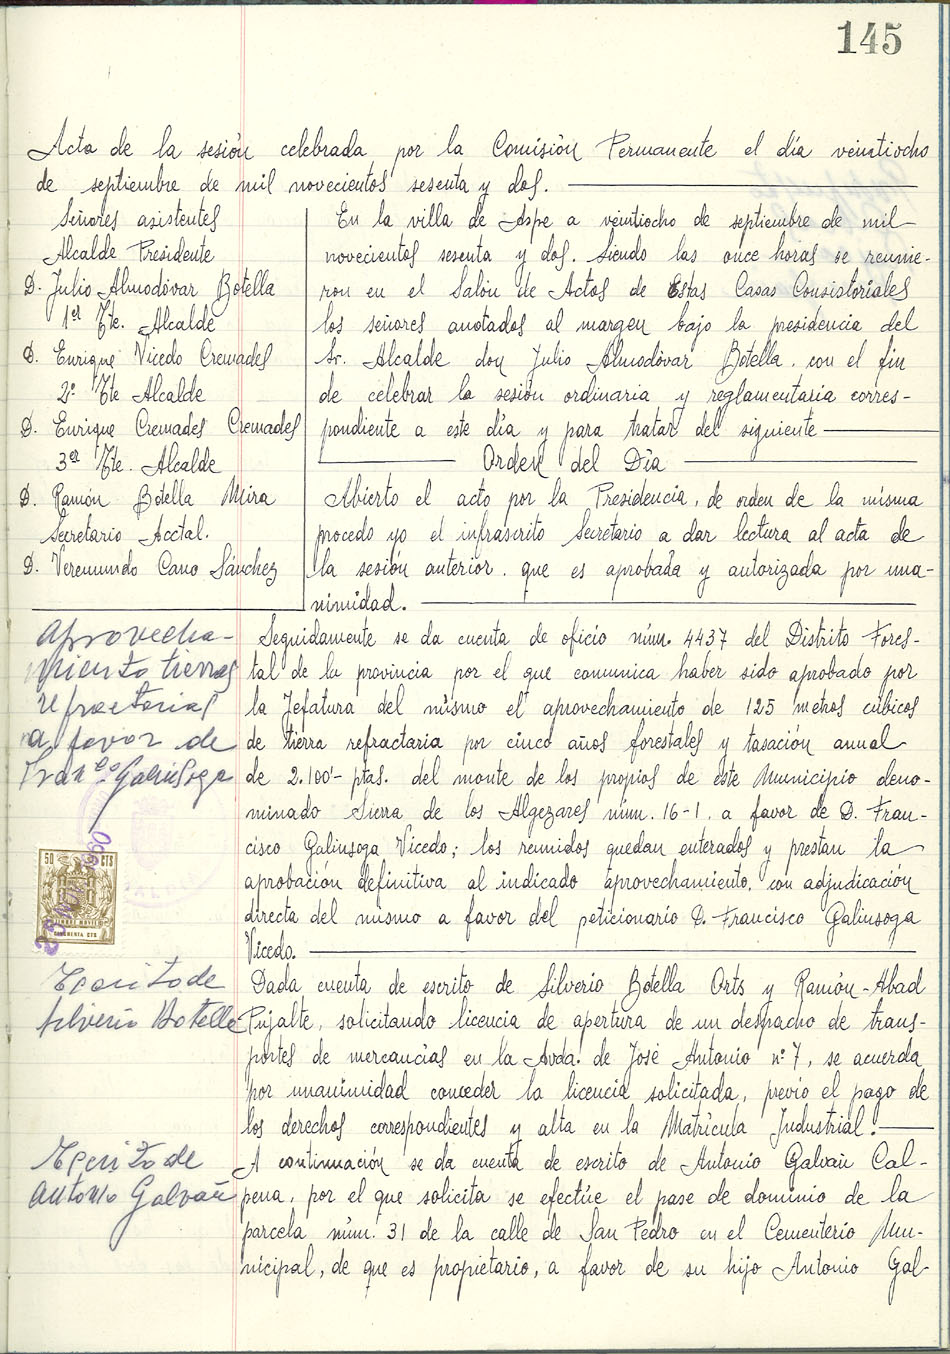 145
Acta de la sesión celebrada por la Comisión Permanente el día veintiocho
de septiembre de mil novecientos sesenta y dos.
Señores asistentes
Alcalde Presidente
D. Julio Almodóvar Botella
1er Tte. Alcalde
D. Enrique Vicedo Cremades
2º Tte Alcalde
D. Enrique Cremades Cremades
3er Tte. Alcalde
D. Ramón Botella Mira
Secretario Acctal.
D. Veremundo Cano Sánchez
En la villa de Aspe a veintiocho de septiembre de mil
novecientos sesenta y dos. Siendo las once horas se reunie-
ron en el Salón de Actos de Estas Casas Consistoriales
los señores anotados al margen bajo la presidencia del
Sr. Alcalde don Julio Almodóvar Botella. con el fin
de celebrar la sesión ordinaria y reglamentaria corres-
pondiente a este día y para tratar del siguiente
Orden del Día
Abierto el acto por la Presidencia, de orden de la misma
procedo yo el infrascrito Secretario a dar lectura al acta de
la sesión anterior. que es aprobada y autorizada por una-
nimidad.
Aprovecha-
miento tierras
refractarias
a favor de
Franco Galinsoga
Seguidamente se da cuenta de oficio núm. 4437 del Distrito Fores-
tal de la provincia por el que comunica haber sido aprobado por
la Jefatura del mismo el aprovechamiento de 125 metros cúbicos
de tierra refractaria por cinco años forestales y tasación anual
de 2.100'- ptas. del monte de los propios de este Municipio deno-
minado Sierra de los Algezares núm. 16-1. a favor de D. Fran-
cisco Galinsoga Vicedo; los reunidos quedan enterados y prestan la
aprobación definitiva al indicado aprovechamiento, con adjudicación
directa del mismo a favor del peticionario D. Francisco Galinsoga
Vicedo.
50 CTS
CINCUENTA CTS
Escrito de
Silverio Botella
Dada cuenta de escrito de Silverio Botella Orts y Ramón-Abad
Pujalte, solicitando licencia de apertura de un despacho de trans-
portes de mercancías en la Avda. de José Antonio nº 7, se acuerda
por unanimidad conceder la licencia solicitada, previo el pago de
los derechos correspondientes y alta en la Matrícula Industrial.
Escrito de
Antonio Galván
A continuación se da cuenta de escrito de Antonio Galván Cal-
pena, por el que solicita se efectúe el pase de dominio de la
parcela núm. 31 de la calle de San Pedro en el Cementerio Mu-
nicipal, de que es propietario, a favor de su hijo Antonio Gal-